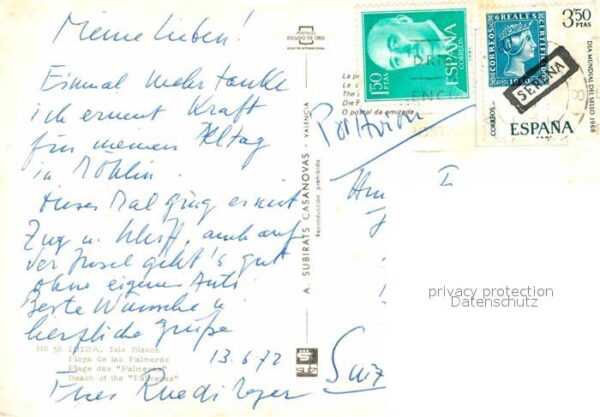 Meine Lieben!
Einmal mehr tanke
ich erneut Kraft
für meinen Alltag
in Möhlin.
Dieses Mal ging es mit
Zug u. Schiff, auch auf
der Insel geht's gut
ohne eigenes Auto.
Beste Wünsche u.
herzliche Grüße
13.6.72
Ruedi
Nº 56 IBIZA, Isla Blanca
Playa de las Palmeras
Plage des "Palmeras"
Beach of the "Palmeras"
POSTALES
ESCUDO DE ORO
A. SUBIRATS CASANOVAS - VALENCIA
Reproducción prohibida
O postal da amizade
Par Avion
1'50
PTAS
ESPAÑA
CORREOS
CORREOS 6 REALES CERTIFICADO
1850
3'50
PTAS
DIA MUNDIAL DEL SELLO 1968
CORREOS
ESPAÑA
SEMANA
privacy protection
Datenschutz